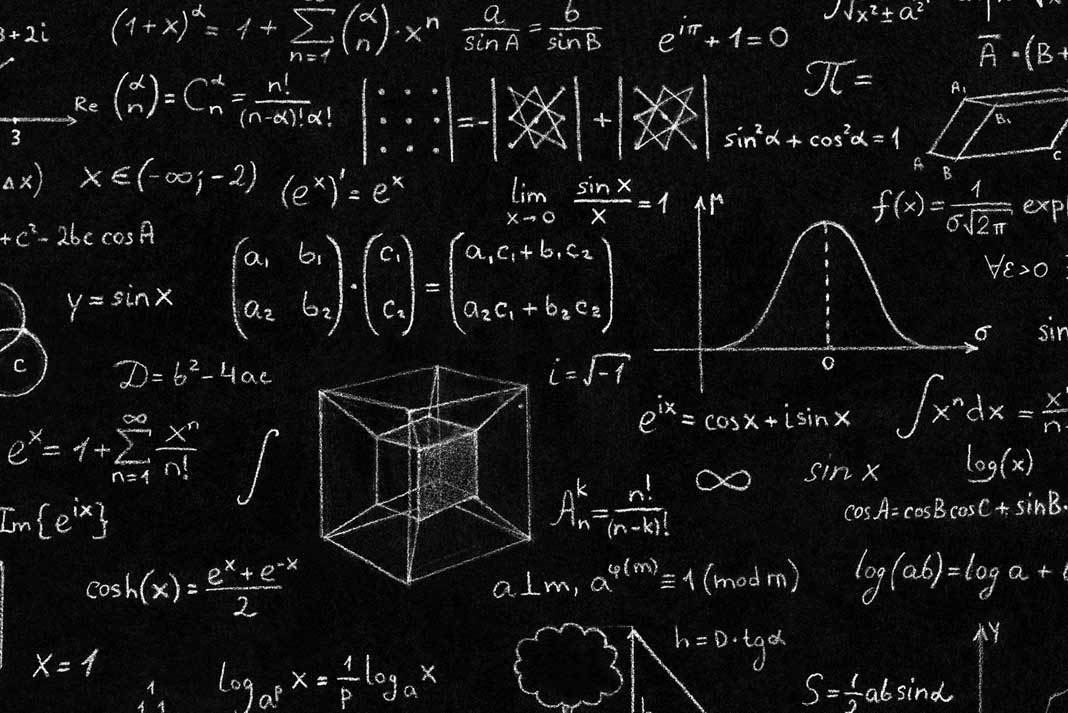 3+2i
(1+x)^α = 1 + ∑_{n=1} (α n) · x^n
a/sin A = b/sin B
e^{iπ} + 1 = 0
∫√x² ± a²
Ā · (B+
Re
3
(α n) = C_n^α = n!/((n-α)! α!)
= -
+
π =
sin²α + cos²α = 1
A₁
B₁
A
B
C
Δx)
x ∈ (-∞; -2)
(e^x)' = e^x
lim_{x→0} sin x/x = 1
μ
f(x) = 1/(σ√2π) exp
+c² - 2bc cos A
y = sin x
(a₁ b₁ a₂ b₂) · (c₁ c₂) = (a₁c₁ + b₁c₂ a₂c₁ + b₂c₂)
∀ε>0
σ
0
sin
C
D = b² - 4ac
i = √-1
e^x = 1 + ∑_{n=1}^∞ x^n/n!
∫
e^{ix} = cos x + i sin x
∫x^n dx =
∞
sin x
log(x)
Im{e^{ix}}
A_n^k = n!/(n-k)!
cos A = cos B cos C + sin B·
cosh(x) = (e^x + e^{-x})/2
a⊥m, a^{φ(m)} ≡ 1 (mod m)
log(ab) = log a +
x = 1
h = D · tg α
y
log_{a^p} x = 1/p log_a x
S = 1/2 ab sin α